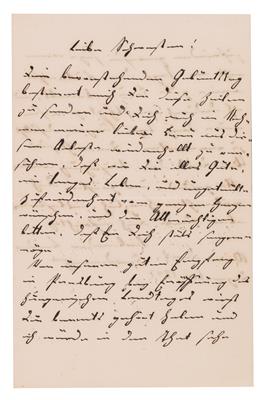 Liebe Schwester!
Dein bevorstehender Geburtstag
bestimmt mich Dir diese Zeilen
zu senden und Dich auch im Nah-
men meiner lieben Frau
zu
daß wir Dir alles Gute,
ein langes Leben, und ungetrübte
Zufriedenheit von ganzem Herzen
wünschen, und den Allmächtigen
bitten, daß Er Dich stets segnen
möge.
Von unserem guten Empfang
in Pressburg bey Eröffnung des
Hungarischen Landtages wirst
Du bereits gehört haben und
ich würde in der That sehr